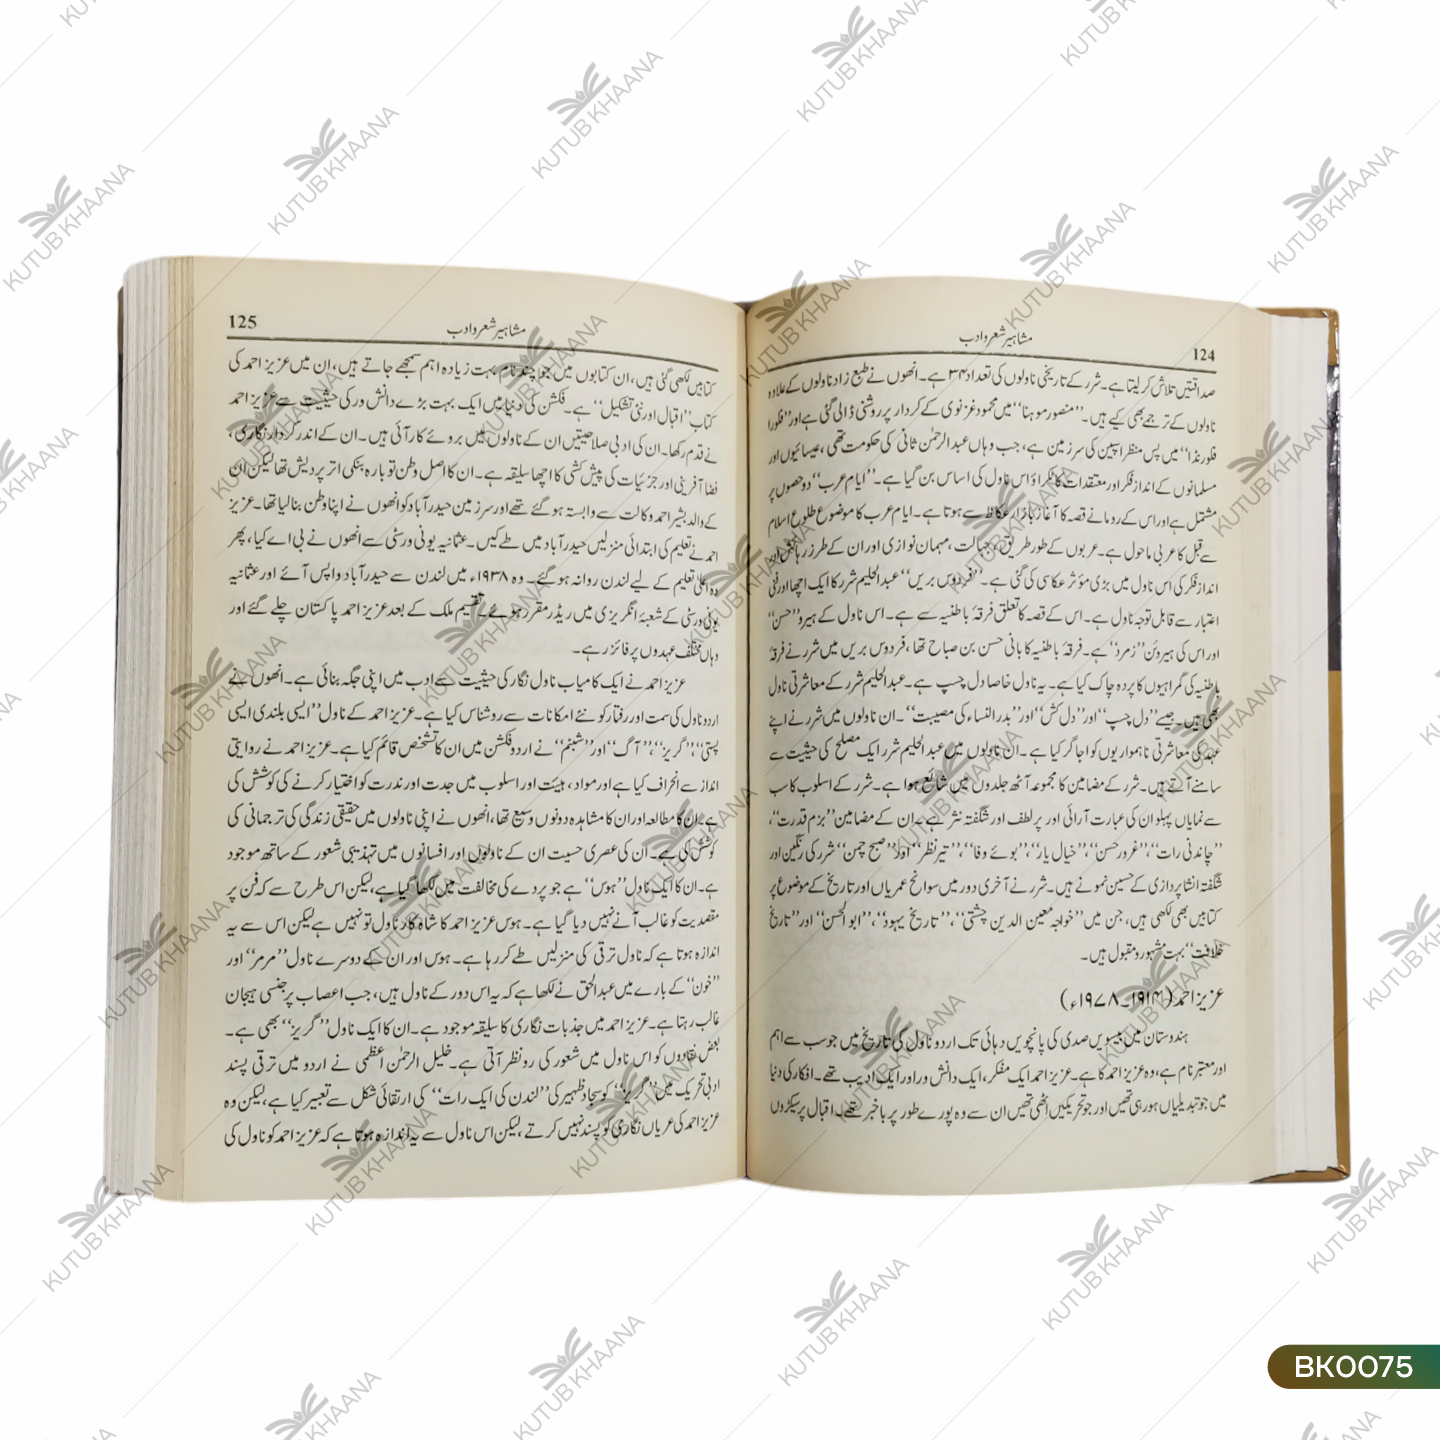 مشاہیر شعر و ادب
124
صداقتیں تلاش کر لیتا ہے۔ شرر کے تاریخی ناولوں کی تعداد ۳۴ ہے۔ انھوں نے طبع زاد ناولوں کے علاوہ
ناولوں کے ترجمے بھی کیے ہیں۔ ”منصور موہنا“ میں محمود غزنوی کے کردار پر روشنی ڈالی گئی ہے اور ”فلورا
فلورنڈا“ میں پس منظر اسپین کی سرزمین ہے، جب وہاں عبدالرحمٰن ثانی کی حکومت تھی، عیسائیوں اور
مسلمانوں کے انداز فکر اور معتقدات کا ٹکراؤ اس ناول کی اساس بن گیا ہے۔ ”ایام عرب“ دو حصوں پر
مشتمل ہے اور اس کے رومانے قصہ کا آغاز بازار عکاظ سے ہوتا ہے۔ ایام عرب کا موضوع طلوع اسلام
سے قبل کا عربی ماحول ہے۔ عربوں کے طور طریق، جہالت، مہمان نوازی اور ان کے طرز رہائش اور
انداز فکر کی اس ناول میں بڑی مؤثر عکاسی کی گئی ہے۔ ”فردوس بریں“ عبدالحلیم شرر کا ایک اچھا اور فنی
اعتبار سے قابل توجہ ناول ہے۔ اس کے قصہ کا تعلق فرقۂ باطنیہ سے ہے۔ اس ناول کے ہیرو ”حسن“
اور اس کی ہیروئن ”زمرد“ ہے۔ فرقۂ باطنیہ کا بانی حسن بن صباح تھا، فردوس بریں میں شرر نے فرقۂ
باطنیہ کی گمراہیوں کا پردہ چاک کیا ہے۔ یہ ناول خاصا دل چسپ ہے۔ عبدالحلیم شرر کے معاشرتی ناول
بھی ہیں۔ جیسے ”دل چسپ“ اور ”دل کش“ اور ”بدر النساء کی مصیبت“۔ ان ناولوں میں شرر نے اپنے
عہد کی معاشرتی ناہمواریوں کو اجاگر کیا ہے۔ ان ناولوں میں عبدالحلیم شرر ایک مصلح کی حیثیت سے
سامنے آتے ہیں۔ شرر کے مضامین کا مجموعہ آٹھ جلدوں میں شائع ہوا ہے۔ شرر کے اسلوب کا سب
سے نمایاں پہلو ان کی عبارت آرائی اور پر لطف اور شگفتہ نثر ہے۔ ان کے مضامین ”بزم قدرت“،
”چاندنی رات“، ”غرور حسن“، ”خیال یار“، ”بوئے وفا“، ”تیر نظر“ اور ”صبح چمن“ شرر کی رنگین اور
شگفتہ انشا پردازی کے حسین نمونے ہیں۔ شرر نے آخری دور میں سوانح عمریاں اور تاریخ کے موضوع پر
کتابیں بھی لکھی ہیں، جن میں ”خواجہ معین الدین چشتی“، ”تاریخ یہود“، ”ابوالحسن“ اور ”تاریخ
خلافت“ بہت مشہور و مقبول ہیں۔
عزیز احمد (۱۹۱۴۔۱۹۷۸ء)
ہندوستان میں بیسویں صدی کی پانچویں دہائی تک اردو ناول کی تاریخ میں جو سب سے اہم
اور معتبر نام ہے، وہ عزیز احمد کا ہے۔ عزیز احمد ایک مفکر، ایک دانش ور اور ایک ادیب تھے۔ افکار کی دنیا
میں جو تبدیلیاں ہو رہی تھیں اور جو تحریکیں اٹھی تھیں ان سے وہ پورے طور پر باخبر تھے۔ اقبال پر سیکڑوں
125
مشاہیر شعر و ادب
کتابیں لکھی گئی ہیں، ان کتابوں میں جو چند نام بہت زیادہ اہم سمجھے جاتے ہیں، ان میں عزیز احمد کی
کتاب ”اقبال اور نئی تشکیل“ ہے۔ فکشن کی دنیا میں ایک بہت بڑے دانش ور کی حیثیت سے عزیز احمد
نے قدم رکھا۔ ان کی ادبی صلاحیتیں ان کے ناولوں میں بروئے کار آئی ہیں۔ ان کے اندر کردار نگاری،
فضا آفرینی اور جزئیات کی پیش کشی کا اچھا سلیقہ ہے۔ ان کا اصل وطن تو بارہ بنکی اتر پردیش تھا لیکن ان
کے والد بشیر احمد وکالت سے وابستہ ہو گئے تھے اور سرزمین حیدرآباد کو انھوں نے اپنا وطن بنا لیا تھا۔ عزیز
احمد نے تعلیم کی ابتدائی منزلیں حیدرآباد میں طے کیں۔ عثمانیہ یونی ورسٹی سے انھوں نے بی اے کیا، پھر
وہ اعلیٰ تعلیم کے لیے لندن روانہ ہو گئے۔ وہ ۱۹۳۸ء میں لندن سے حیدرآباد واپس آئے اور عثمانیہ
یونی ورسٹی کے شعبۂ انگریزی میں ریڈر مقرر ہوئے۔ تقسیم ملک کے بعد عزیز احمد پاکستان چلے گئے اور
وہاں مختلف عہدوں پر فائز رہے۔
عزیز احمد نے ایک کامیاب ناول نگار کی حیثیت سے ادب میں اپنی جگہ بنائی ہے۔ انھوں نے
اردو ناول کی سمت اور رفتار کو نئے امکانات سے روشناس کیا ہے۔ عزیز احمد کے ناول ”ایسی بلندی ایسی
پستی“، ”گریز“، ”آگ“ اور ”شبنم“ نے اردو فکشن میں ان کا تشخص قائم کیا ہے۔ عزیز احمد نے روایتی
انداز سے انحراف کیا ہے اور مواد، ہیئت اور اسلوب میں جدت اور ندرت کو اختیار کرنے کی کوشش کی
ہے۔ ان کا مطالعہ اور ان کا مشاہدہ دونوں وسیع تھا، انھوں نے اپنی ناولوں میں حقیقی زندگی کی ترجمانی کی
کوشش کی ہے۔ ان کی عصری حسیت ان کے ناولوں اور افسانوں میں تہذیبی شعور کے ساتھ موجود
ہے۔ ان کا ایک ناول ”ہوس“ ہے جو پردے کی مخالفت میں لکھا گیا ہے، لیکن اس طرح سے کہ فن پر
مقصدیت کو غالب آنے نہیں دیا گیا ہے۔ ہوس عزیز احمد کا شاہ کار ناول تو نہیں ہے لیکن اس سے یہ
اندازہ ہوتا ہے کہ ناول ترقی کی منزلیں طے کر رہا ہے۔ ہوس اور ان کے دوسرے ناول ”مرمر“ اور
”خون“ کے بارے میں عبدالحق نے لکھا ہے کہ یہ اس دور کے ناول ہیں، جب اعصاب پر جنسی ہیجان
غالب رہتا ہے۔ عزیز احمد میں جذبات نگاری کا سلیقہ موجود ہے۔ ان کا ایک ناول ”گریز“ بھی ہے۔
بعض نقادوں کو اس ناول میں شعور کی رو نظر آتی ہے۔ خلیل الرحمٰن اعظمی نے اردو میں ترقی پسند
ادبی تحریک میں ”گریز“ کو سجاد ظہیر کی ”لندن کی ایک رات“ کی ارتقائی شکل سے تعبیر کیا ہے، لیکن وہ
عزیز احمد کی عریاں نگاری کو پسند نہیں کرتے، لیکن اس ناول سے یہ اندازہ ہوتا ہے کہ عزیز احمد کو ناول کی
KUTUB KHAANA
BK0075